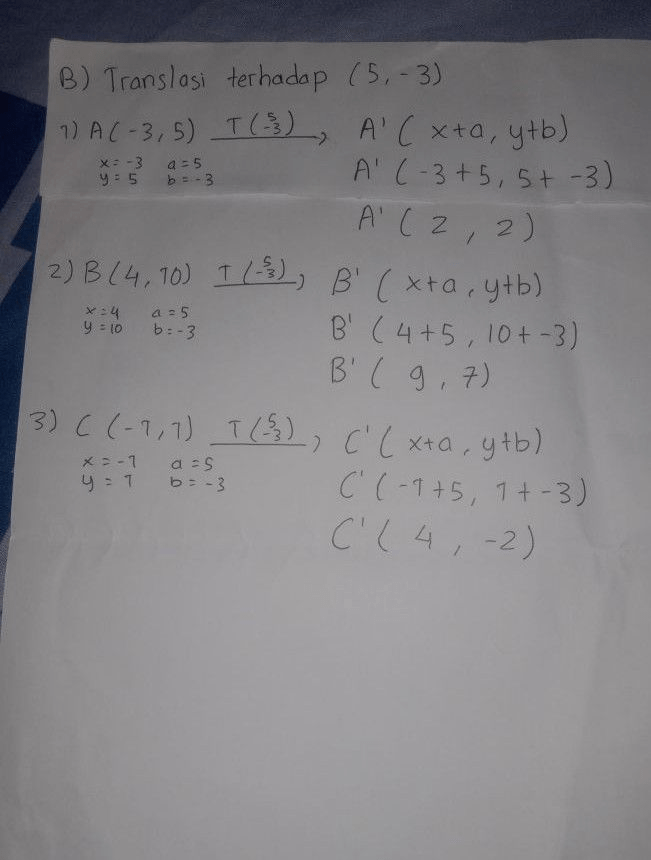 B) Translasi terhadap (5, -3)
1) A (-3, 5) T(5 -3) → A' ( x+a, y+b)
x = -3 a = 5
y = 5 b = -3
A' ( -3 + 5, 5 + -3)
A' ( 2 , 2 )
2) B (4, 10) T(5 -3) → B' ( x+a , y+b)
x = 4 a = 5
y = 10 b = -3
B' ( 4+5 , 10 + -3)
B' ( 9 , 7)
3) C (-1, 1) T(5 -3) → C' ( x+a , y+b)
x = -1 a = 5
y = 1 b = -3
C' ( -1+5, 1 + -3)
C' ( 4 , -2)